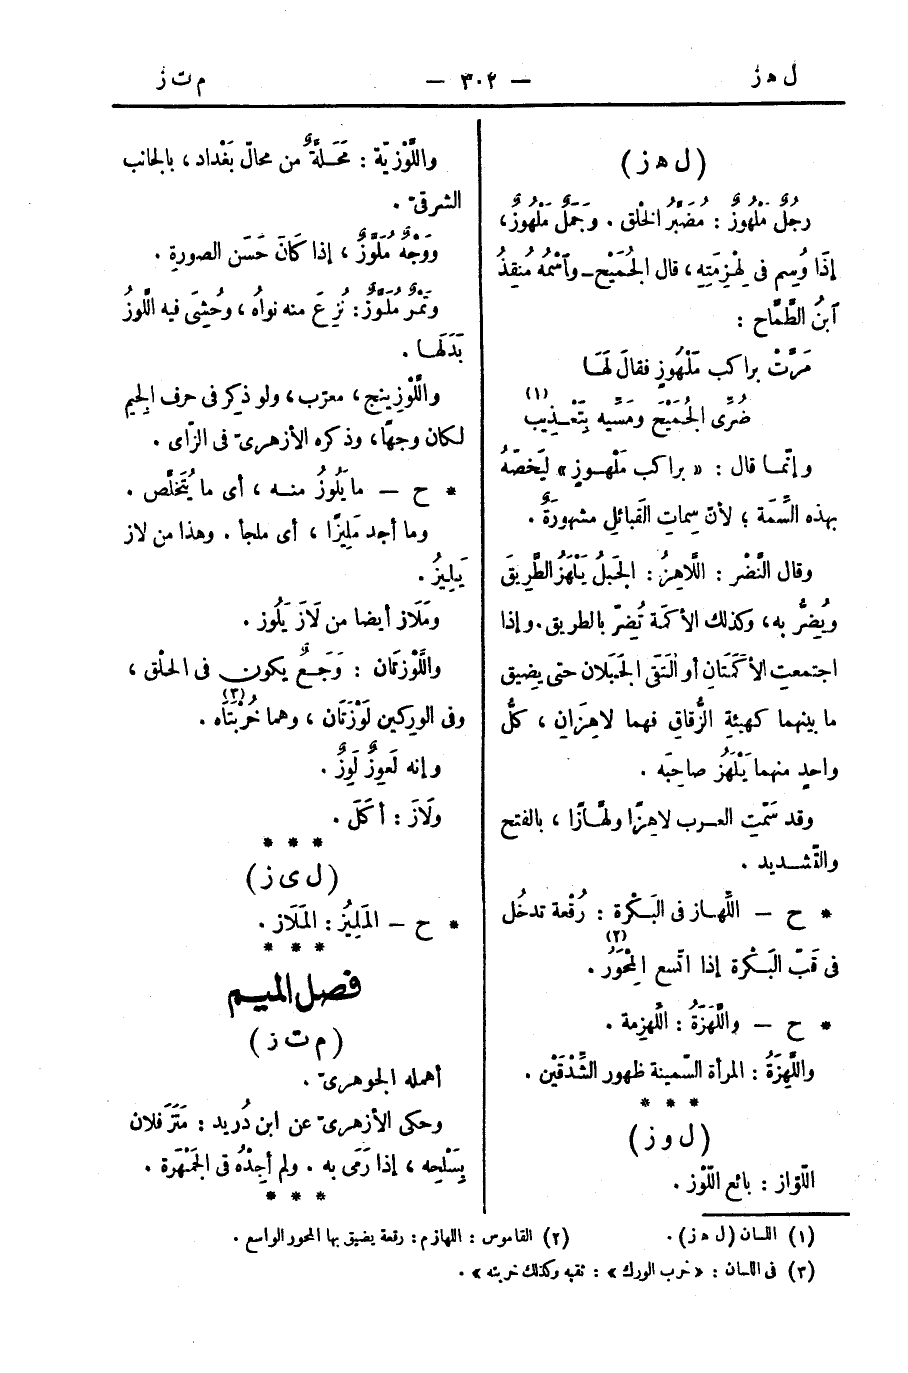 ل ه ز
— ٣٠٢ —
م ت ز
(ل ه ز)
رجُلٌ مَلْهُوزٌ : مُضَبَّرُ الخَلْق . وجَمَلٌ مَلْهُوزٌ ،
إذَا وُسِم فى لِهْزِمَتِه ، قال الجُمَيْح – وآسْمُه مُنقِذُ
آبنُ الطَّمَّاح :
مَرَّتْ براكب مَلْهُوزٍ فقالَ لَهَا
ضُرِّى الجُمَيْحَ ومَسِّيه بِتَعْـذِيب (١)
وإنّمـا قال : « براكب مَلْهـوزٍ » ليَخصّهُ
بهذه السِّمَة ؛ لأنّ سِماتِ القَبائلِ مشهورَةٌ .
وقال النَّضْر : اللَّاهِزُ : الجَبلُ يَلْهَزُ الطَّرِيقَ
ويُضِرُّ به ، وكذلك الأكَمَة تُضِرّ بالطريق . وإذا
اجتمعتِ الأكَمَتَانِ أو الْتَقَى الجَبَلان حتى يضِيق
ما بينهما كهيئةِ الزُّقاقِ فهما لاهِزَانِ ، كلُّ
واحدٍ منهما يَلْهَزُ صاحِبَه .
وقد سَمّتِ العـرب لاهِزًا ولهَّـازًا ، بالفتح
والتّشـديد .
* ح — اللَّهـاز فى البَـكْرة : رُقْعة تدخُل
فى قَبّ البَـكْرة إذا اتّسع المِحْوَرُ (٢) .
* ح — واللَّهَزَةُ : اللَّهْزِمة .
واللَّهِزَةُ : المرأة السّمينة ظهور الشِّدْقَيْن .
* * *
(ل و ز)
اللّوّاز : بائع اللّوْز .
واللَّوْزِيّة : مَحَـلَّةٌ من محالّ بَغْداد ، بالجانب
الشرقىّ .
ووَجْهٌ مُلَوَّزٌ ، إذا كَانَ حَسَن الصورةِ .
وتَمْـرٌ مُلَـوَّزٌ : نُزِعَ منه نواُه ، وحُشِىَ فيه اللَّوزُ
بَدَلَهـا .
واللَّوْزِينج ، معرّب ، ولو ذكِر فى حرف الجيم
لكان وجهًا ، وذكره الأزهرىّ فى الزّاى .
* ح — ما يَلُوزُ منـه ، أى ما يُتَخلَّص .
وما أجد مَلِيزًا ، أى ملجأ . وهذا من لاز
يَـلِيزُ .
ومَلَاز أيضا من لَازَ يَلُوز .
واللَّوْزتَان : وَجَـعٌ يكون فى الحَلْق ،
وفى الوركين لَوْزَتَان ، وهما خُرْبَتَاه (٣) .
وإنه لَعَوِزٌ لَوِزٌ .
ولَازَ : أكَلَ .
* * *
(ل ى ز)
* ح — المَلِيزُ : المَلَاز .
* * *
فصل الميـم
(م ت ز)
أهمله الجوهرىّ .
وحكى الأزهرىّ عن ابن دُريد : مَتَزَ فلان
بِسَلْحِه ، إذا رَمَى به . ولم أجِدْهُ فى الجَمْهَرة .
* * *
(١) اللسان (ل ه ز) .
(٢) القاموس : اللهازم : رقعة يضيق بها المحور الواسع .
(٣) فى اللسان : « خرب الورك » : ثقبه وكذلك خربته » .